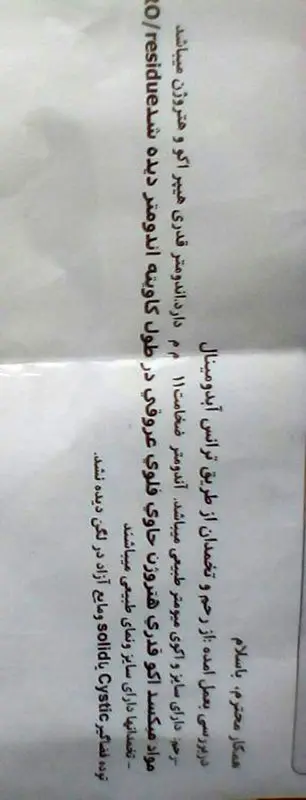 همکار محترم، باسلام
دربررسی بعمل آمده :از رحم و تخمدان از طریق ترانس آبدومینال
-رحم: دارای سایز و اکوی میومتر طبیعی میباشد. آندومتر ضخامت11 م م دارد.اندومتر قدری هیپر اکو و هتروژن میباشد
مواد میکسد اکو قدری هتروژن حاوی فلوی عروقی در طول کاویته اندومتر دیده شد.RO/residue
- تخمدانها دارای سایز ونمای طبیعی میباشند
توده فضاگیر Cystic یاsolid ومایع آزاد در لگن دیده نشد.